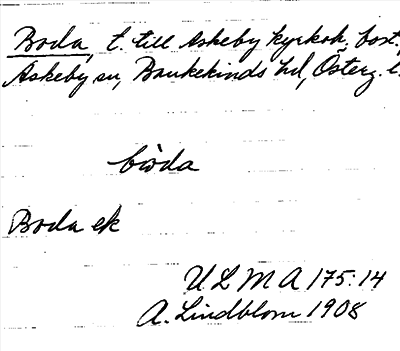 Boda, t. till Askeby kyrkoh. bost.,
Askeby sn, Bankekinds hd, Österg. l.
bòda
Boda ek
ULMA 175:14
A. Lindblom 1908